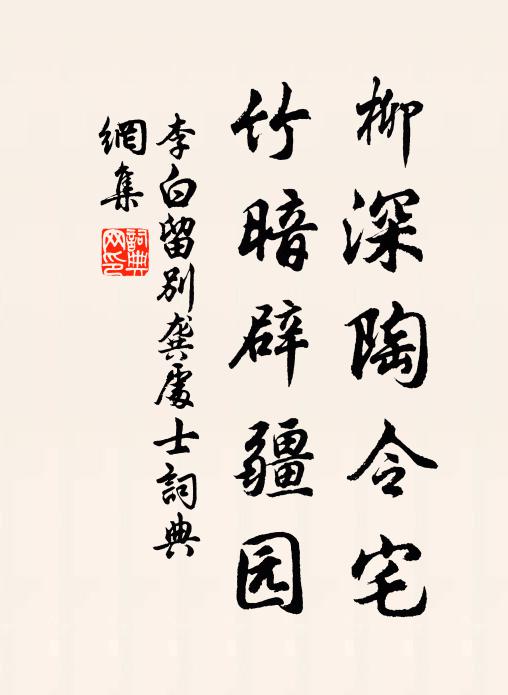 柳深陶令宅
竹暗辟疆园
李白留別龚處士詞典
網集
詞典網印